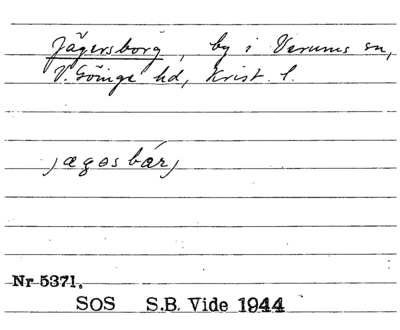 Jägersborg, by i Verums sn,
V. Göinge hd, Krist. l.
jægosbárj
Nr 5371.
SOS S.B. Vide 1944